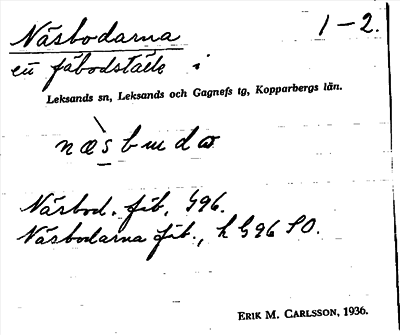 Näsbodarna 1-2.
en fäbodställe i
Leksands sn, Leksands och Gagnefs tg, Kopparbergs län.
Näsbod. fäb. G96.
Näsbodarna fäb., h G96 SO.
ERIK M. CARLSSON, 1936.